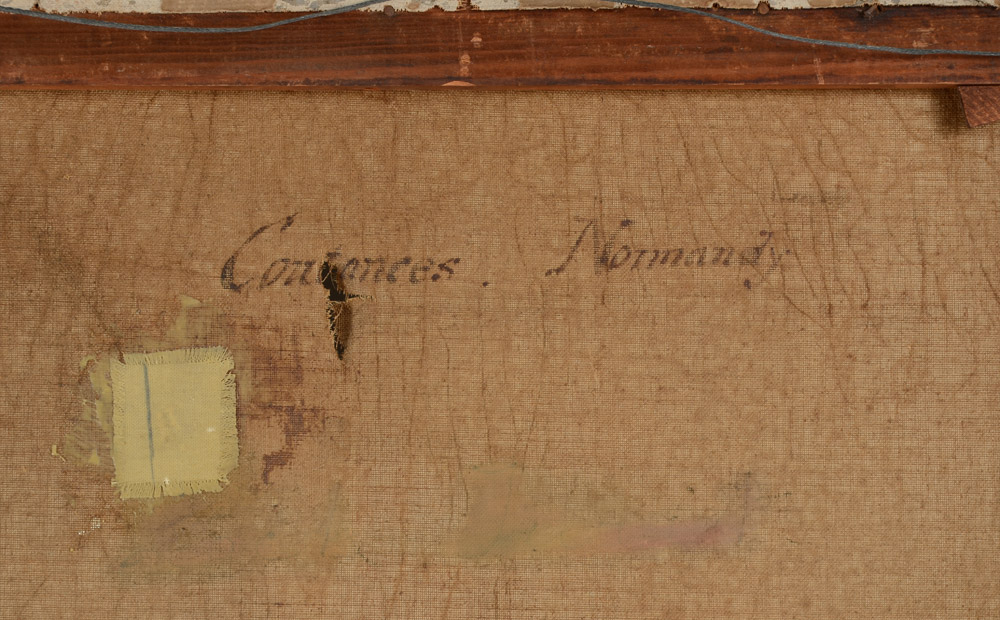 Coutances. Normandy